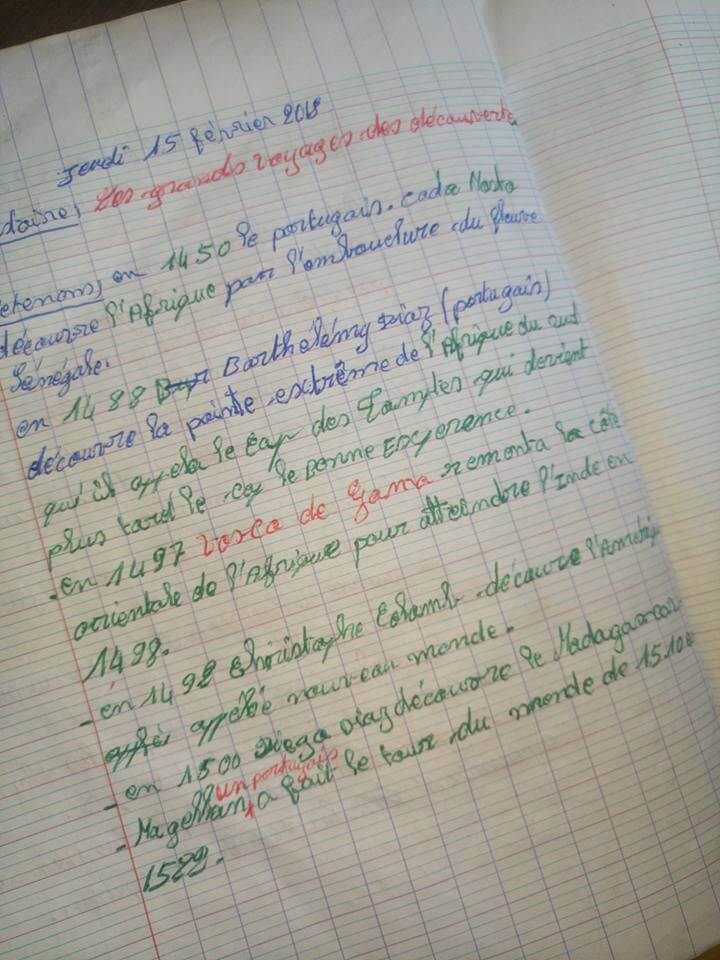 Jeudi 15 février 2018
daire, Les grands voyages des découverte
etenons, en 1450 le portugais. cada Mosto
découvre l'Afrique par l'embouchure du fleuve
Sénégale.
en 1488 Barthélémy Diaz (portugais)
découvre la pointe extrême de l'Afrique du sud
qu'il appela le cap des Tamples qui devient
plus tard le cap le Bonne Esperence.
- en 1497 Vosca de Gama remonta la côte
orientale de l'Afrique pour atteindre l'Inde en
1498.
- en 1492 Christophe Colomb découvre l'Amériq
appélé nouveau monde.
- en 1500 Diega Diaz découvre le Madagascar
un portugais
- Magellan, a fait le tour du monde de 1510 à
1522.